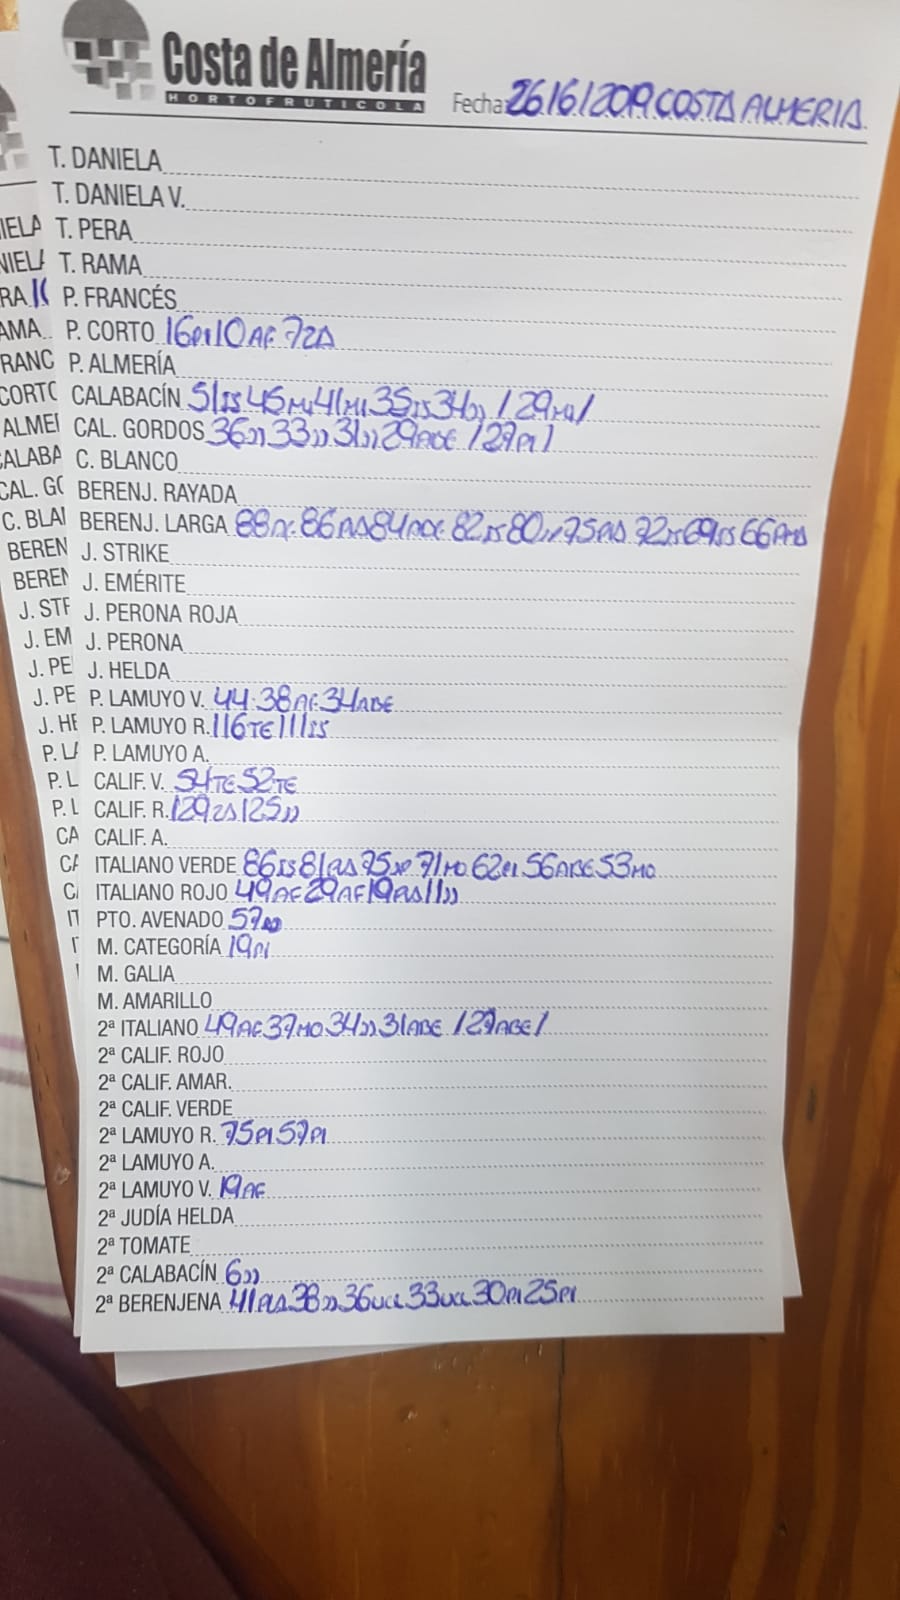 Costa de Almería
HORTOFRUTICOLA
Fecha: 26/6/2019 COSTA ALMERIA.
T. DANIELA
T. DANIELA V.
T. PERA
T. RAMA
P. FRANCÉS
P. CORTO 16PI 10AF 72
P. ALMERÍA
CALABACÍN 51SS 45MU 41MI 35SS 34)) /29MU/
CAL. GORDOS 36)) 33)) 31)) 29ABE /27PI/
C. BLANCO
BERENJ. RAYADA
BERENJ. LARGA 88AF 86 84 82SS 80)) 75 72SS 69SS 66
J. STRIKE
J. EMÉRITE
J. PERONA ROJA
J. PERONA
J. HELDA
P. LAMUYO V. 44. 38AF 34ABE
P. LAMUYO R. 116TE 111SS
P. LAMUYO A.
CALIF. V. 54TE 52TE
CALIF. R. 129 125))
CALIF. A.
ITALIANO VERDE 86SS 81 75 71MO 62PI 56ABE 53MO
ITALIANO ROJO 49AF 29AF 19 11))
PTO. AVENADO 57
M. CATEGORÍA 19PI
M. GALIA
M. AMARILLO
2ª ITALIANO 49AF 37MO 34)) 31ABE /27ABE/
2ª CALIF. ROJO
2ª CALIF. AMAR.
2ª CALIF. VERDE
2ª LAMUYO R. 75PI 57PI
2ª LAMUYO A.
2ª LAMUYO V. 19AF
2ª JUDÍA HELDA
2ª TOMATE
2ª CALABACÍN 6))
2ª BERENJENA 41 38)) 36 33 30PI 25PI